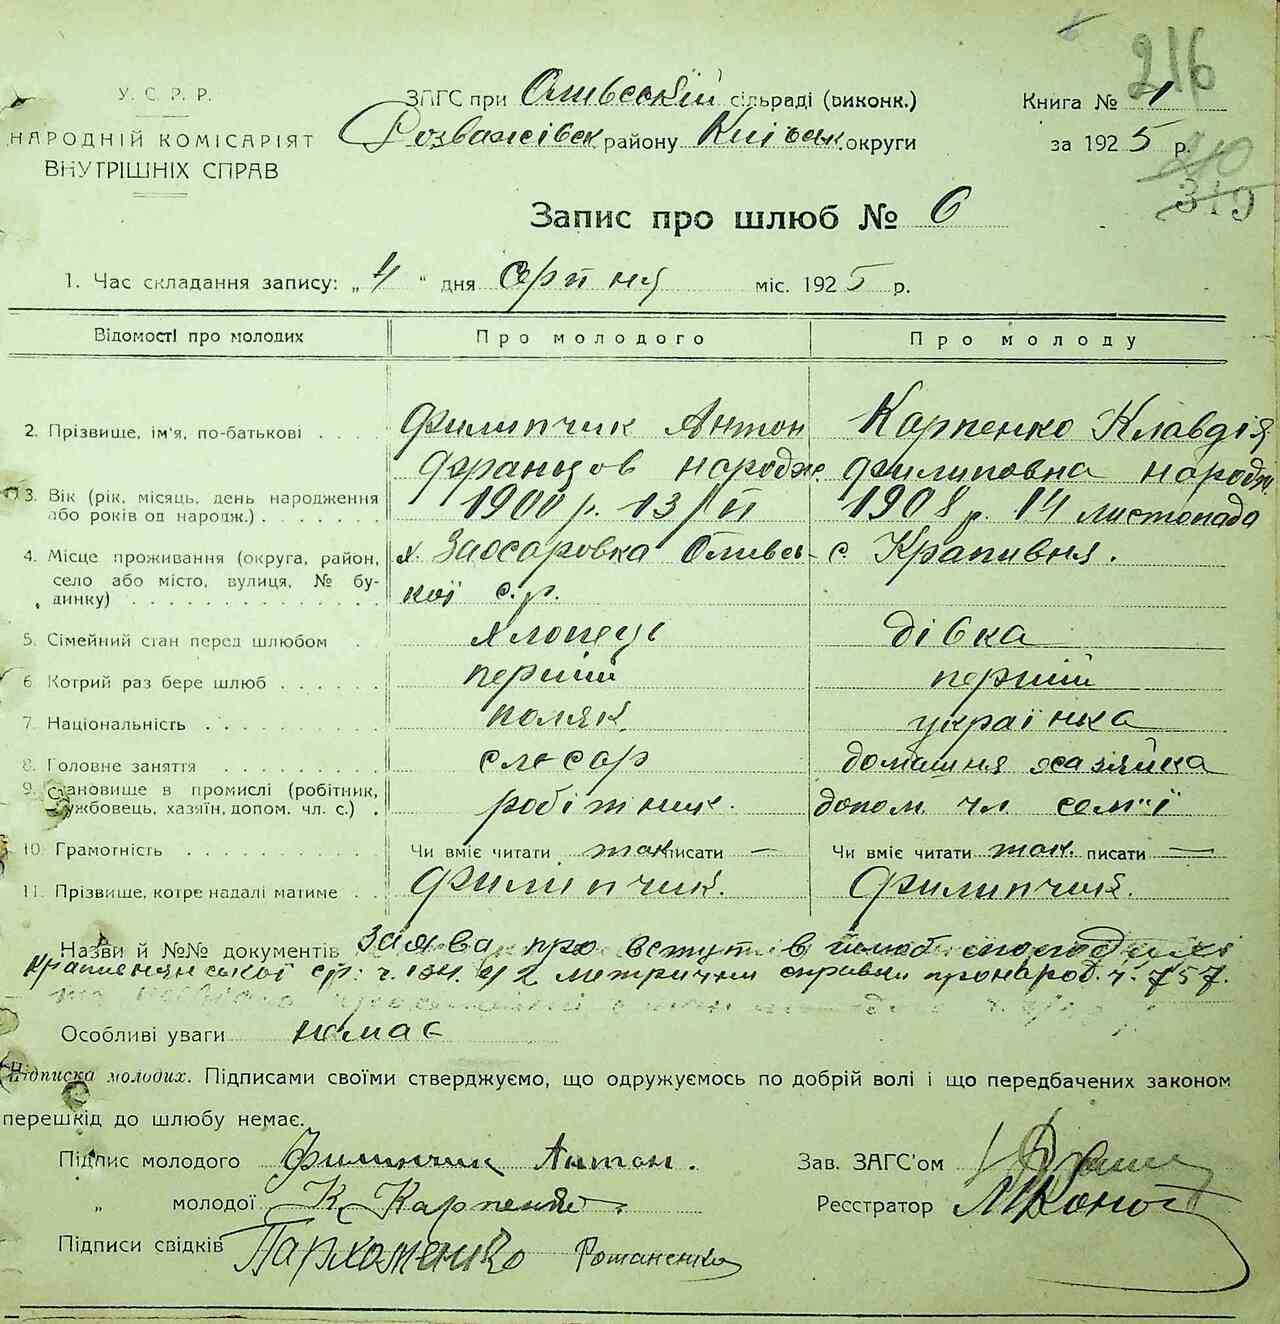 216
У. С. Р. Р.
НАРОДНІЙ КОМІСАРІЯТ
ВНУТРІШНІХ СПРАВ
ЗАГС при Олівській сільраді (виконк.)
Розважівск району Київськ. округи
Книга № 1
за 1925 р.
210
319
Запис про шлюб № 6
1. Час складання запису: „4“ дня серпня міс. 1925 р.
Відомості про молодих Про молодого Про молоду
2. Прізвище, ім'я, по-батькові . . . . Филипчик Антон Карпенко Клавдія
Францов народж. филиповна народж.
3. Вік (рік, місяць, день народження або років од народж.) . . . . . . . 1900 р. 13/VI 1908 р. 14 листопада
4. Місце проживання (округа, район, х. Заосаровка Оливсь- с. Крапивня.
село або місто, вулиця, № бу- кої с.р.
динку) . . . . . . . . . . . . . .
5. Сімейний стан перед шлюбом . хлопець дівка
6. Котрий раз бере шлюб . . . . . . перший перший
7. Національність . . . . . . . . . . поляк українка
8. Головне заняття . . . . . . . . . слесар домашня хазяйка
9. Становище в промислі (робітник, службовець, хазяїн, допом. чл. с.) . робітник. допом. чл сем"ї
10. Грамотність . . . . . . . . . . . Чи вміє читати так писати — Чи вміє читати так. писати —
11. Прізвище, котре надалі матиме . . Филипчик. Филипчик.
Назви й №№ документів заява про вступ в шлюб
метричн справки про народ. ч. 757.
Особливі уваги немає
Підписка молодих. Підписами своїми стверджуємо, що одружуємось по добрій волі і що передбачених законом
перешкід до шлюбу немає.
Підпис молодого Филипчик Антон. Зав. ЗАГС'ом
„ молодої К Карпенко. Реєстратор
Підписи свідків Пархоменко Романенко